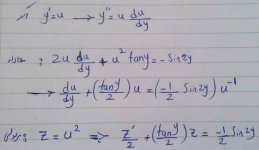 y' = u → y'' = u du/dy
: 2u du/dy + u² tan y = - Sin2y
→ du/dy + (tan y/2) u = (-1/2 Sin2y) u⁻¹
: z = u² ⇒ z'/2 + (tan y/2) z = -1/2 Sin2y